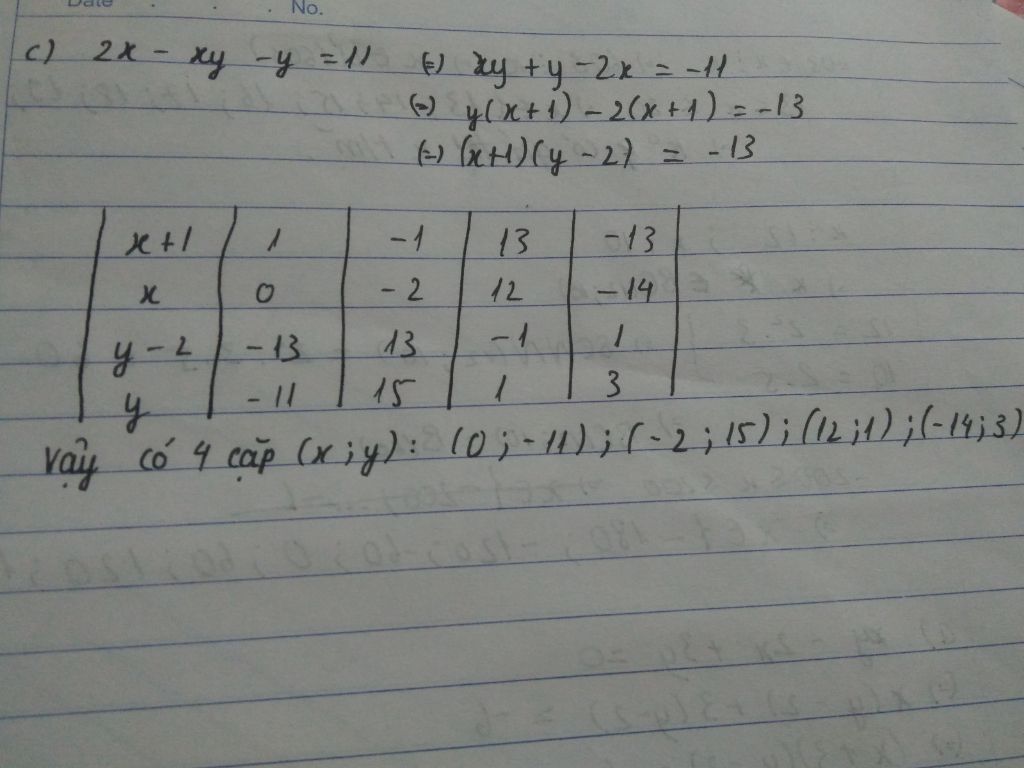 Date . . . No.
c) 2x - xy - y = 11 (=) xy + y - 2x = -11
(=) y(x+1) - 2(x+1) = -13
(=) (x+1)(y-2) = -13
x+1 1 -1 13 -13
x 0 -2 12 -14
y-2 -13 13 -1 1
y -11 15 1 3
Vậy có 4 cặp (x;y): (0;-11); (-2;15); (12;1); (-14;3)